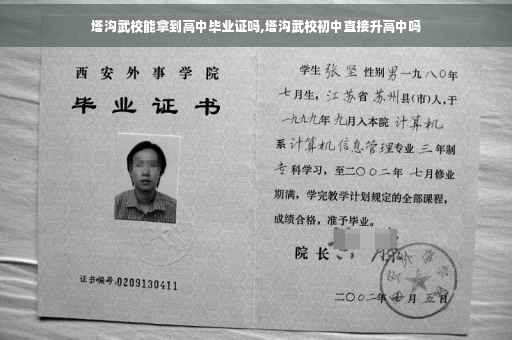 塔沟武校能拿到高中毕业证吗,塔沟武校初中直接升高中吗
西安外事学院
毕业证书
证书编号:0209130411
学生 张坚 性别 男 一九八〇年
七月生, 江苏省 苏州 县(市)人,于
一九九九年 九月入本院 计算机
系 计算机信息管理专业 三 年制
专科学习,至二〇〇二年 七月修业
期满,学完教学计划规定的全部课程,
成绩合格,准予毕业。
院长
二〇〇二年 月五日